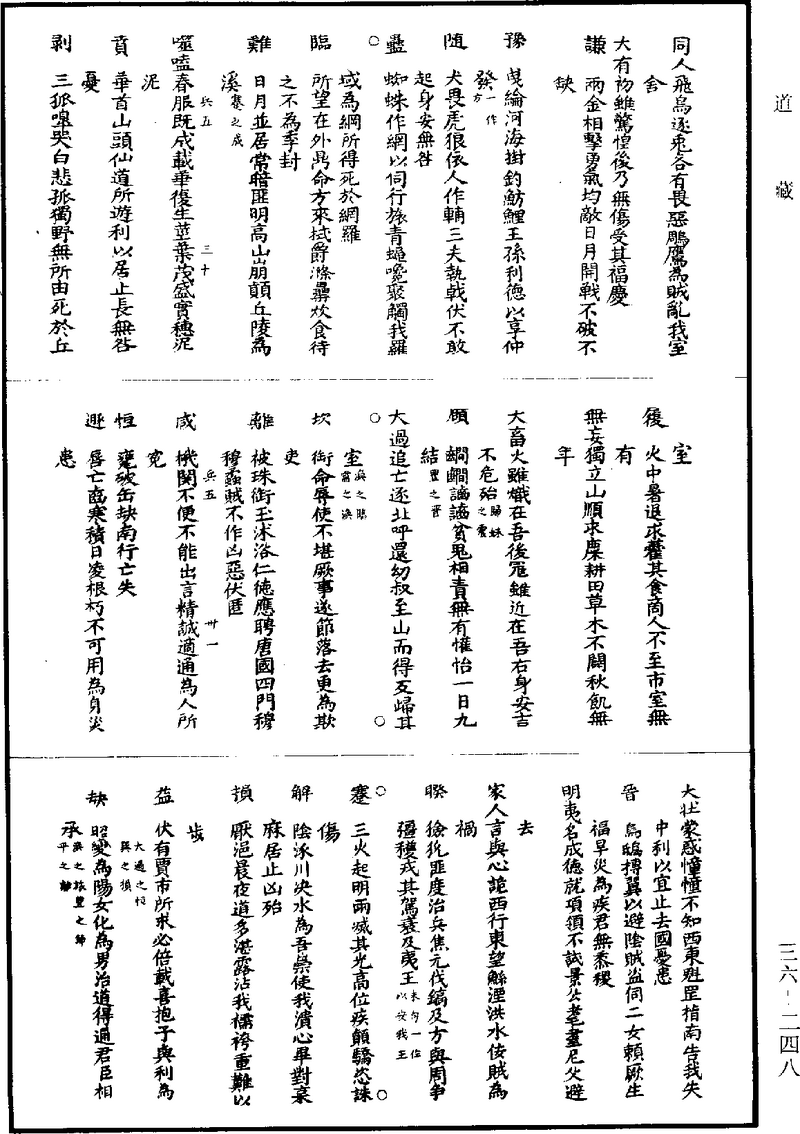 道藏
同人飛鳥逐兎各有畏惡鵰鷹為賊亂我室
舍
大有初雖驚惶後乃無傷受其福慶
謙 兩金相擊勇氣均敵日月開戰不破不
缺
豫 曵綸河海掛釣魴鯉王孫利德以享仲
發一作方
隨 犬畏虎狼依人作輔三夫執戟伏不敢
起身安無咎
蠱 蜘蛛作網以伺行旅青蠅嚵聚觸我羅
域為網所得死於網羅
臨 所望在外鼎命方來拭爵滌罍炊食待
之不為季封
難 日月並居常暗匪明高山崩顛丘陵為
溪蹇之咸
兵五 三十
噬嗑春服既成載華復生莖葉茂盛實穗泥
泥
賁 華首山頭仙道所遊利以居止長無咎
憂
剥 三狐嘷哭白悲孤獨野無所由死於丘
室
復 火中暑退求藿其食商人不至市室無
有
無妄獨立山順求麋耕田草木不闢秋飢無
年
大畜火雖熾在吾後冦雖近在吾右身安吉
不危殆歸妹之震
頤 齺齺謫謫貧鬼相責無有懽怡一日九
結豐之晋
大過追亡逐北呼還幼叔至山而得反歸其
室
坎 銜命辱使不堪厥事遂節落去更為欺
吏
離 被珠銜玉沐浴仁德應聘唐國四門穆
穆蟊賊不作凶惡伏匿
兵五 卅一
咸 機関不便不能出言精誠適通為人所
寃
恒 甕破缶缺南行亡失
遯 唇亡齒寒積日凌根朽不可用為身災
患
大壯蒙惑憧憧不知西東魁罡指南告我失
中利以宜止去國憂患
晋 鳥鴟摶翼以避陰賊盗伺二女賴厥生
福旱災為疾君無黍稷
明夷名成德就項領不試景公耄盡尼父避
去
家人言與心詭西行東望鯀湮洪水佞賊為
禍
睽 獫狁匪度治兵焦元伐鎬及方與周争
彊獲戎其駕衰及夷王末句一作以安我王
蹇 三火起明雨滅其光高位疾顛驕恣誅
傷
解 陰涿川決水為吾祟使我潰心畢對哀
麻居止凶殆
損 厭浥晨夜道多湛露沾我襦袴重難以
步
益 伏有賈市所求必倍載喜抱子與利為
大過之恒 巽之損
缺 昭變為陽女化為男治道得通君臣相
承
三六－二四八